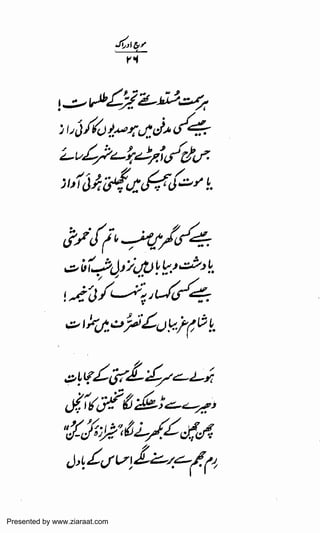 موج ادراک
۲۶
ہر سمت مسلط تھے تحیّر کے طلسمات!
جیسے کسی مدفن میں ہو صدیوں کا کوئی راز
جس طرح کسی اُجڑے ہوئے شہر کے سائے
یا موت کی ہچکی میں پگھلتی ہوئی آواز
جیسے کسی گھر میں صفِ ماتم کی خموشی
یا دشت و بیاباں میں نزولِ شبِ آفات
جیسے کسی کہسار پہ تنہا کوئی خیمہ!
یا شامِ غریباں کے تصرف میں
ہولے سے سرکنے لگے ہستی کے حجابات
دھیرے سے ڈھلکنے لگا تخلیق کا آنچل
چھن چھن کے بکھرنے لگا، شیرازۂ "کُن کُن"
رم جھم سے برسنے لگے احساس کے بادل
Presented by www.ziaraat.com